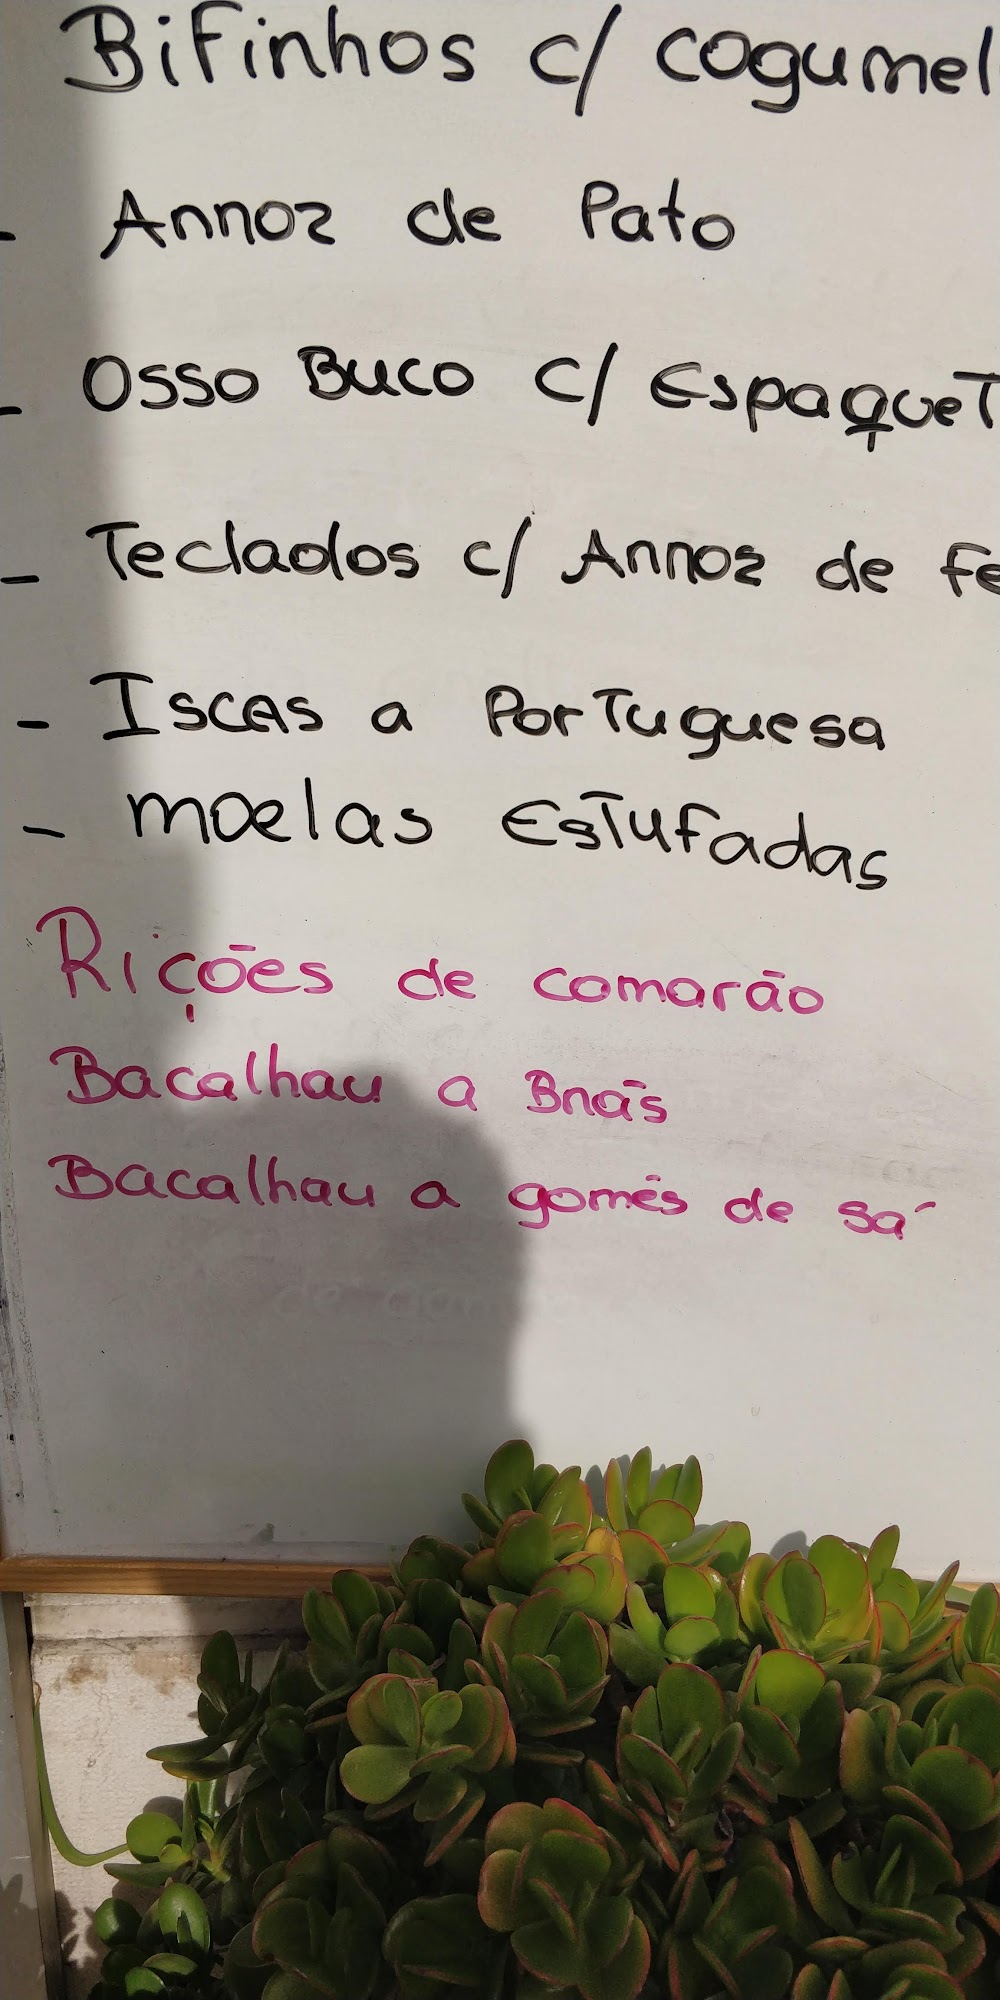 Bifinhos c/ cogumel
- Arroz de Pato
- Osso Buco c/ EspaqueT
- Teclados c/ Arroz de Fe
- Iscas a PorTuguesa
- moelas EsTufadas
Rições de comarão
Bacalhau a Brãs
Bacalhau a gomês de sá